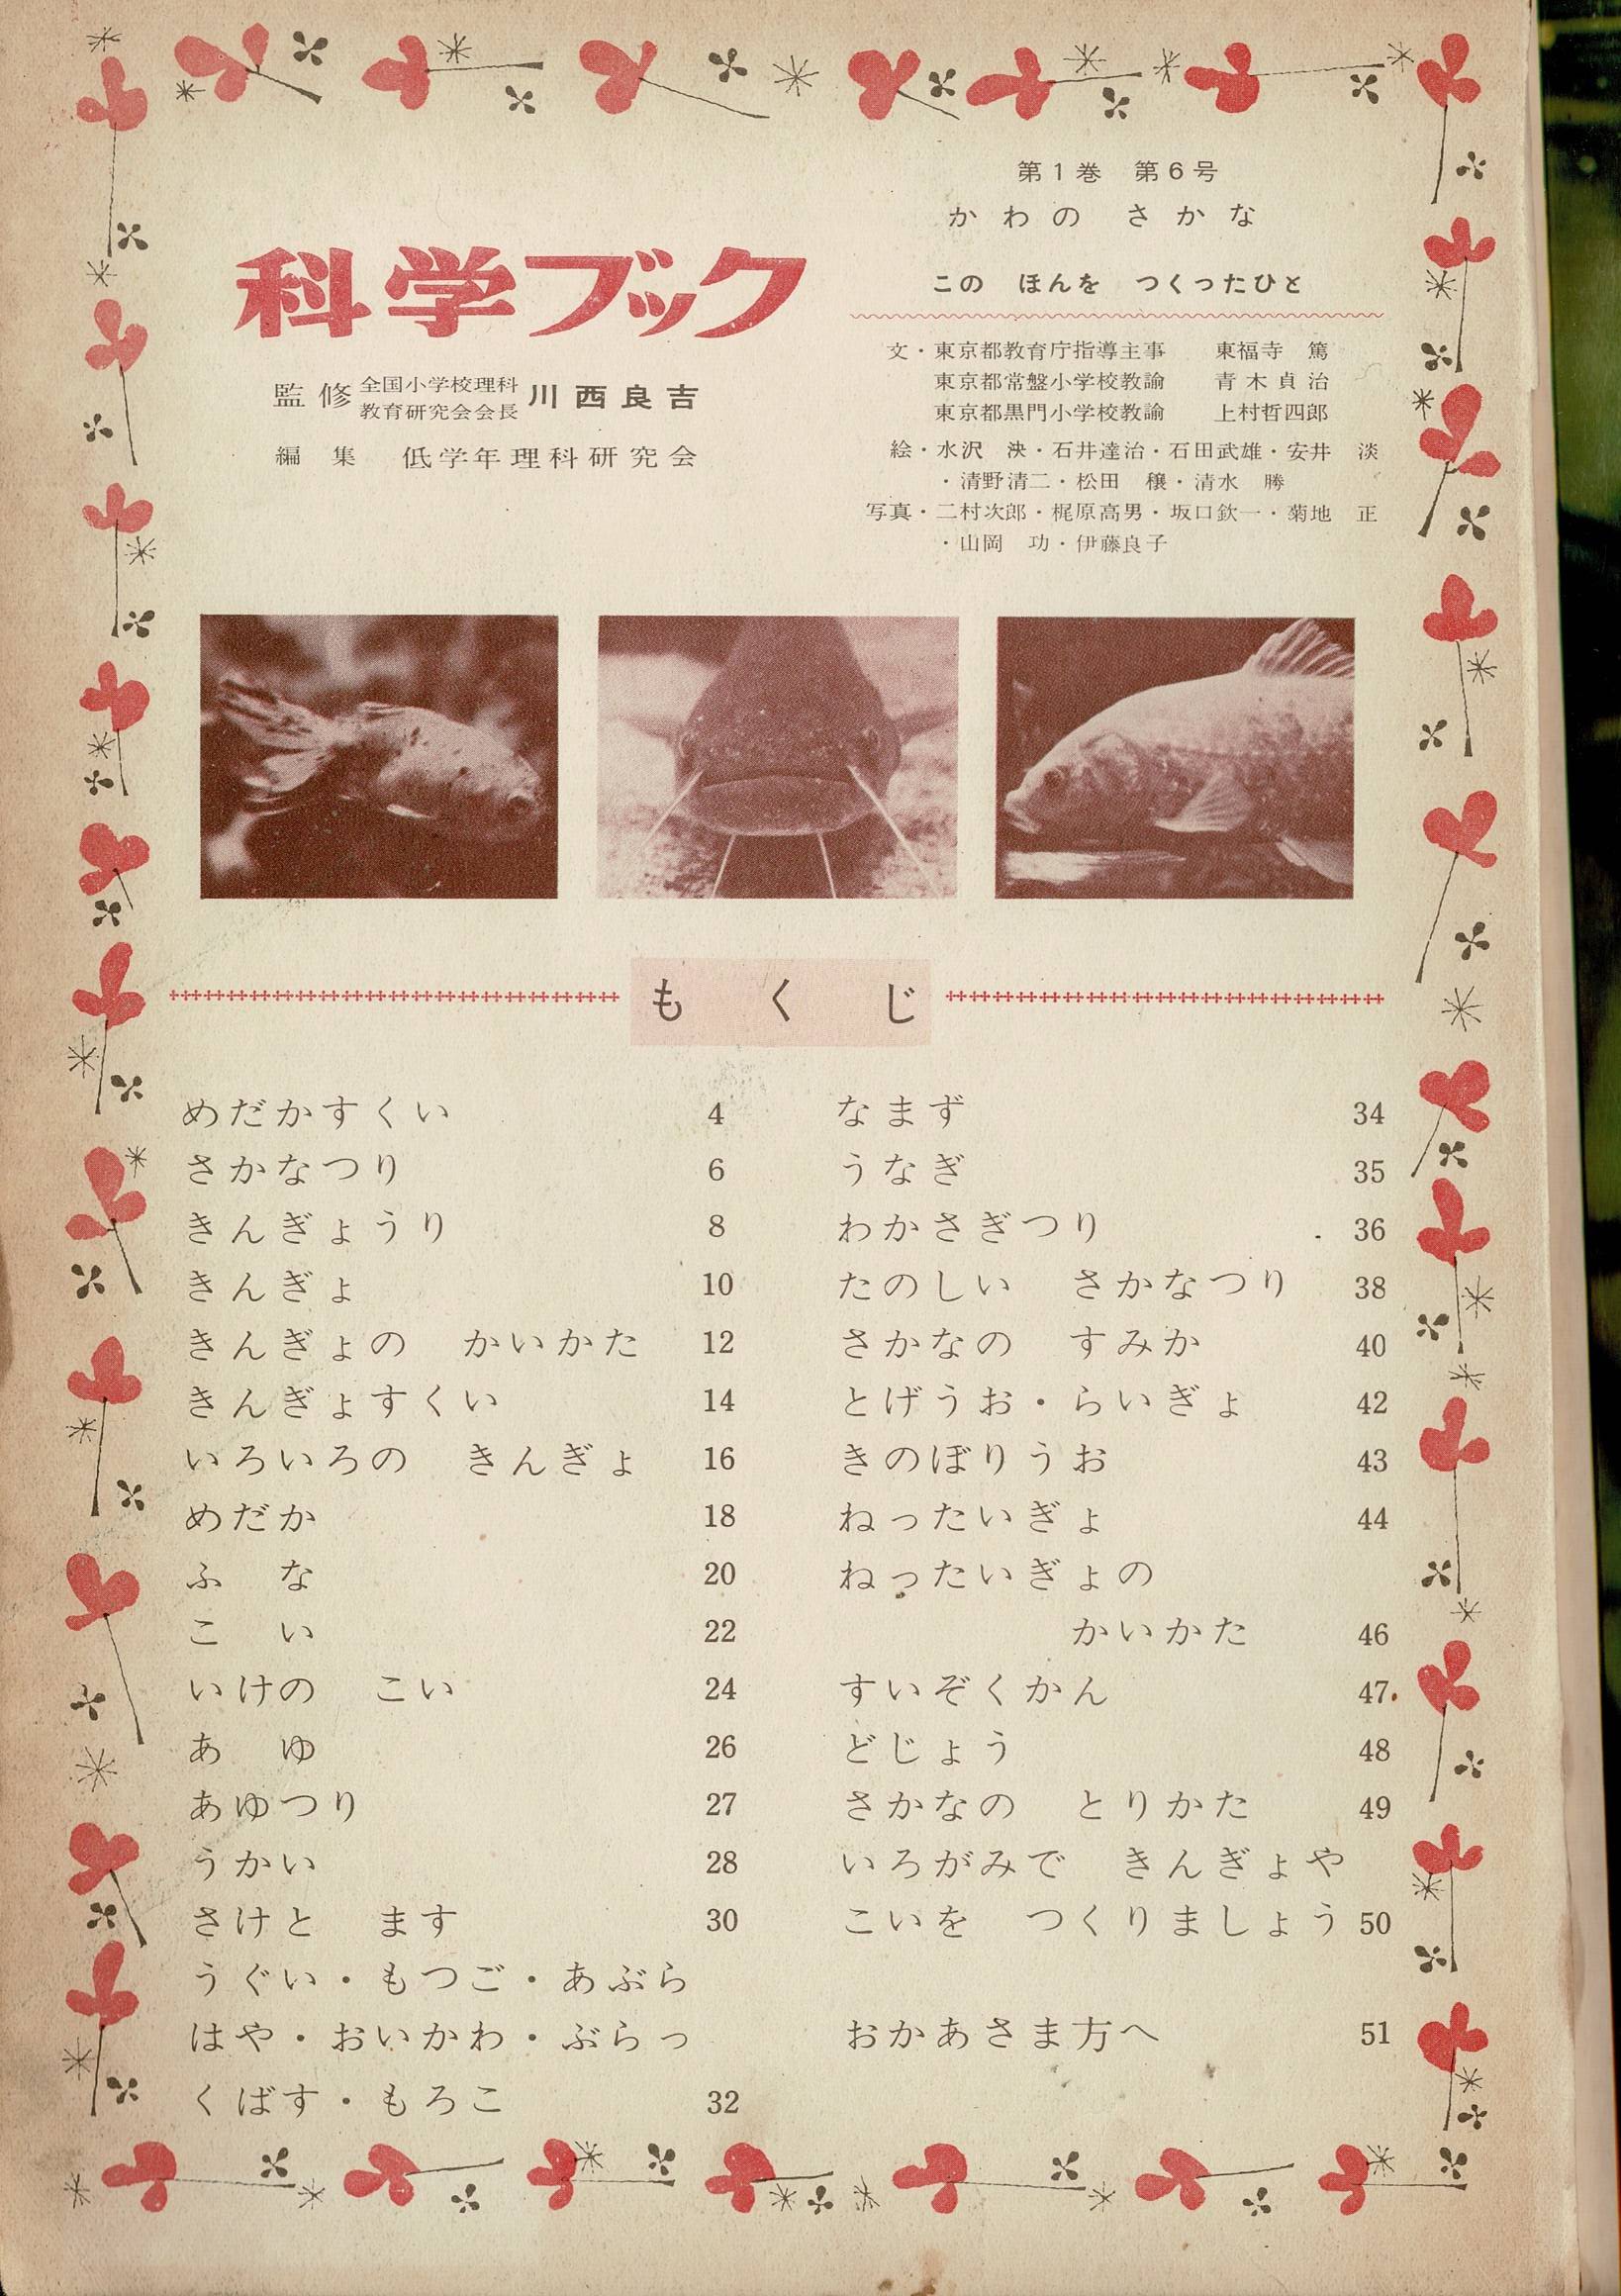 第1巻 第6号
かわの さかな
科学ブック
監修 全国小学校理科教育研究会会長 川西良吉
編集 低学年理科研究会
この ほんを つくったひと
文・東京都教育庁指導主事 東福寺 篤
東京都常盤小学校教諭 青木貞治
東京都黒門小学校教諭 上村哲四郎
絵・水沢 泱・石井達治・石田武雄・安井 淡
・清野清二・松田 穣・清水 勝
写真・二村次郎・梶原高男・坂口欽一・菊地 正
・山岡 功・伊藤良子
もくじ
めだかすくい 4
さかなつり 6
きんぎょうり 8
きんぎょ 10
きんぎょの かいかた 12
きんぎょすくい 14
いろいろの きんぎょ 16
めだか 18
ふな 20
こい 22
いけの こい 24
あゆ 26
あゆつり 27
うかい 28
さけと ます 30
うぐい・もつご・あぶら
はや・おいかわ・ぶらっ
くばす・もろこ 32
なまず 34
うなぎ 35
わかさぎつり 36
たのしい さかなつり 38
さかなの すみか 40
とげうお・らいぎょ 42
きのぼりうお 43
ねったいぎょ 44
ねったいぎょの
かいかた 46
すいぞくかん 47
どじょう 48
さかなの とりかた 49
いろがみで きんぎょや
こいを つくりましょう 50
おかあさま方へ 51